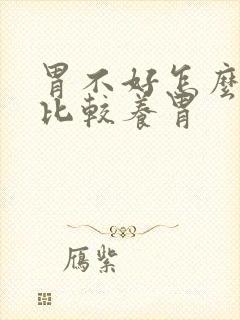 胃不好怎麽
比較養胃
鴈紫